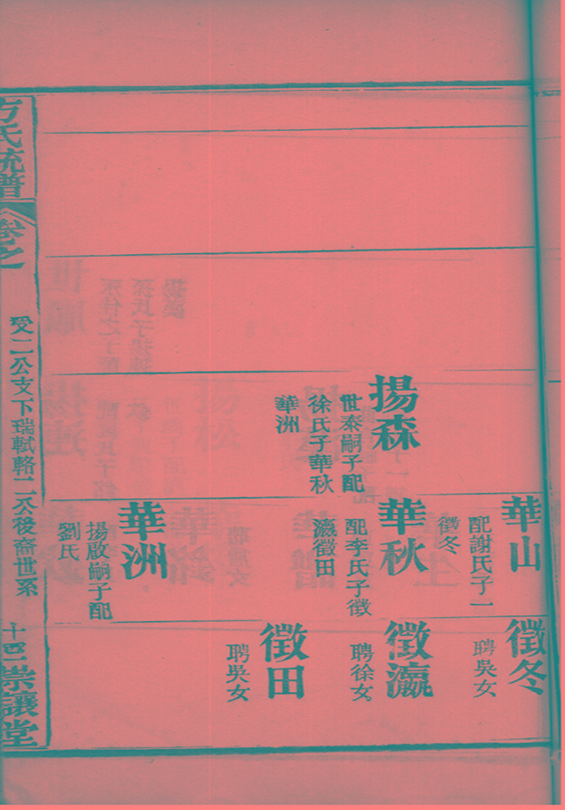 華山
配謝氏子一
徵冬
徵冬
聘吳女
揚森
世泰嗣子配
徐氏子華秋
華洲
華秋
配李氏子徵
瀛徵田
徵瀛
聘徐女
徵田
聘吳女
華洲
揚啟嗣子配
劉氏
方氏統譜
卷之
受二公支下瑞軾輅二公後裔世系
崇讓堂